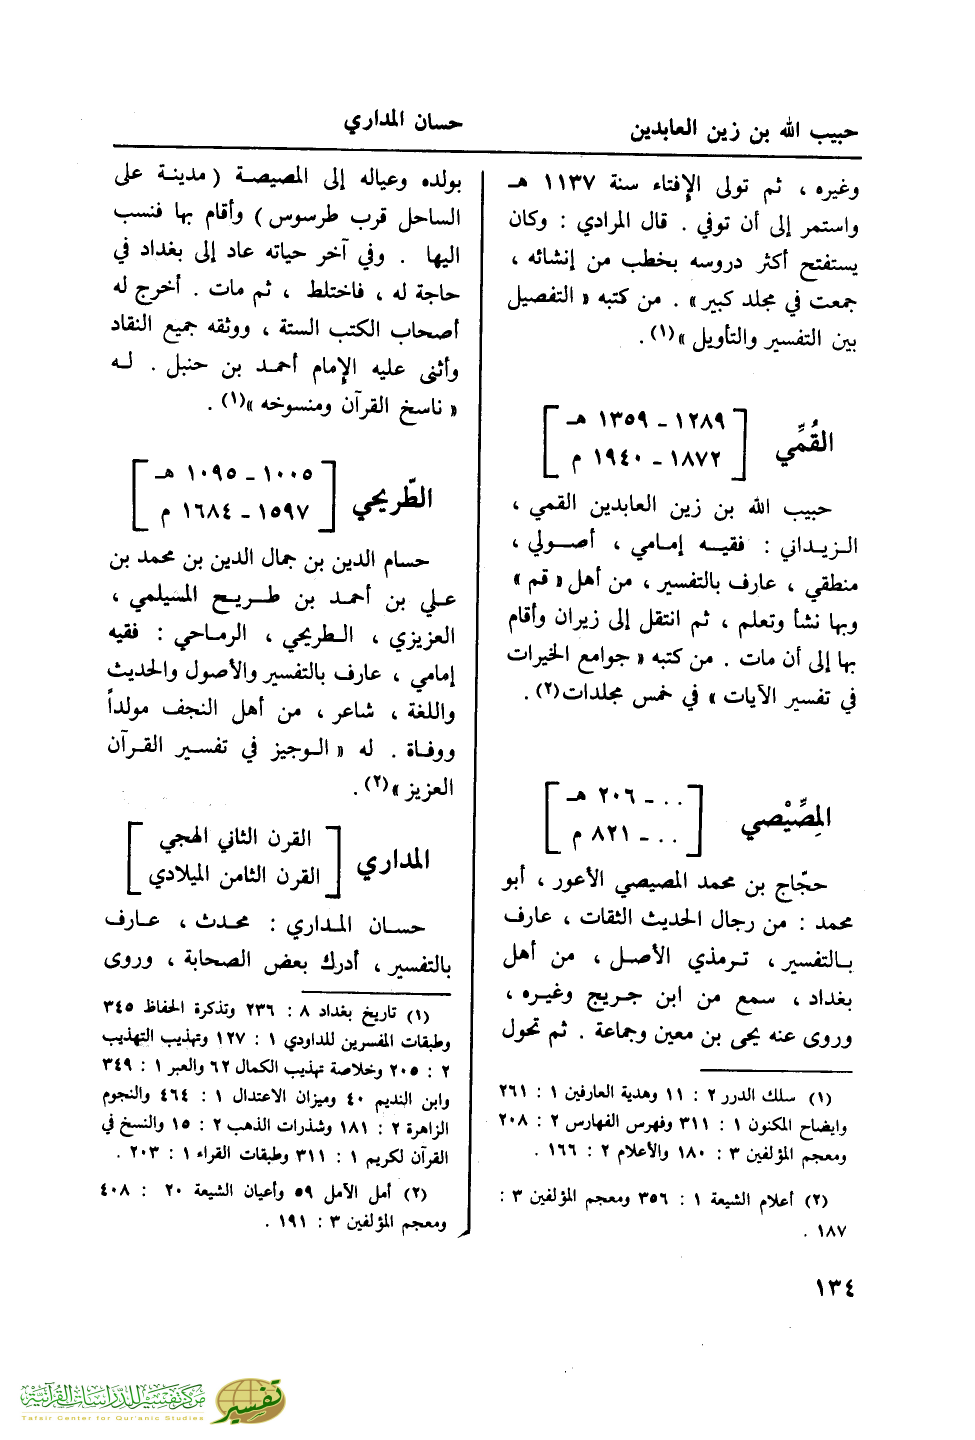 حبيب الله بن زين العابدين
حسان المداري
وغيره ، ثم تولى الإفتاء سنة ١١٣٧ هـ
واستمر إلى أن توفي . قال المرادي : وكان
يستفتح أكثر دروسه بخطب من إنشائه ،
جمعت في مجلد كبير» . من كتبه « التفصيل
بين التفسير والتأويل »(١) .
القُمِّي
١٢٨٩ - ١٣٥٩ هـ
١٨٧٢ - ١٩٤٠ م
حبيب الله بن زين العابدين القمي ،
الزيداني : فقيه إمامي ، أصولي ،
منطقي ، عارف بالتفسير ، من أهل « قم »
وبها نشأ وتعلم ، ثم انتقل إلى زيران وأقام
بها إلى أن مات . من كتبه « جوامع الخيرات
في تفسير الآيات » في خمس مجلدات(٢) .
المِصِّيْصي
.. - ٢٠٦ هـ
.. - ٨٢١ م
حجّاج بن محمد المصيصي الأعور ، أبو
محمد : من رجال الحديث الثقات ، عارف
بالتفسير ، ترمذي الأصل ، من أهل
بغداد ، سمع من ابن جريج وغيره ،
وروى عنه يحيى بن معين وجماعة . ثم تحول
(١) سلك الدرر ٢ : ١١ وهدية العارفين ١ : ٢٦١
وايضاح المكنون ١ : ٣١١ وفهرس الفهارس ٢ : ٢٠٨
ومعجم المؤلفين ٣ : ١٨٠ والأعلام ٢ : ١٦٦ .
(٢) أعلام الشيعة ١ : ٣٥٦ ومعجم المؤلفين ٣ :
١٨٧ .
بولده وعياله إلى المصيصة ( مدينة على
الساحل قرب طرسوس ) وأقام بها فنسب
اليها . وفي آخر حياته عاد إلى بغداد في
حاجة له ، فاختلط ، ثم مات . أخرج له
أصحاب الكتب الستة ، ووثقه جميع النقاد
وأثنى عليه الإمام أحمد بن حنبل . له
« ناسخ القرآن ومنسوخه »(١) .
الطّريحي
١٠٠٥ - ١٠٩٥ هـ
١٥٩٧ - ١٦٨٤ م
حسام الدين بن جمال الدين بن محمد بن
علي بن أحمد بن طريح المسيلمي ،
العزيزي ، الطريحي ، الرماحي : فقيه
إمامي ، عارف بالتفسير والأصول والحديث
واللغة ، شاعر ، من أهل النجف مولداً
ووفاة . له « الوجيز في تفسير القرآن
العزيز »(٢) .
المداري
القرن الثاني الهجي
القرن الثامن الميلادي
حسان المداري : محدث ، عارف
بالتفسير ، أدرك بعض الصحابة ، وروى
(١) تاريخ بغداد ٨ : ٢٣٦ وتذكرة الحفاظ ٣٤٥
وطبقات المفسرين للداودي ١ : ١٢٧ وتهذيب التهذيب
٢ : ٢٠٥ وخلاصة تهذيب الكمال ٦٢ والعبر ١ : ٣٤٩
وابن النديم ٤٠ وميزان الاعتدال ١ : ٤٦٤ والنجوم
الزاهرة ٢ : ١٨١ وشذرات الذهب ٢ : ١٥ والنسخ في
القرآن لكريم ١ : ٣١١ وطبقات القراء ١ : ٢٠٣ .
(٢) أمل الآمل ٥٩ وأعيان الشيعة ٢٠ : ٤٠٨
ومعجم المؤلفين ٣ : ١٩١ .
١٣٤
مركز تفسير للدراسات القرآنية
Tafsir Center for Qur'anic Studies
تفسير